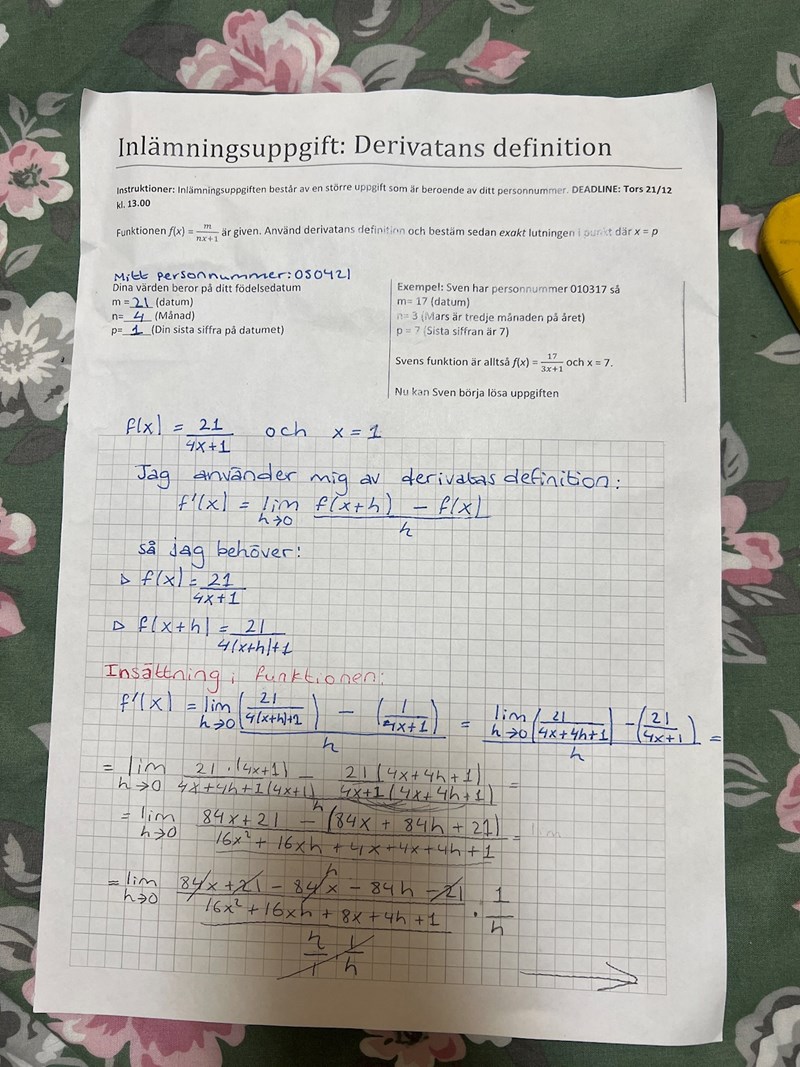 Inlämningsuppgift: Derivatans definition
Instruktioner: Inlämningsuppgiften består av en större uppgift som är beroende av ditt personnummer. DEADLINE: Tors 21/12
kl. 13.00
Funktionen f(x) = m/(nx+1) är given. Använd derivatans definition och bestäm sedan exakt lutningen i punkt där x = p
Mitt personnummer: 050421
Dina värden beror på ditt födelsedatum
m = 21 (datum)
n= 4 (Månad)
p= 1 (Din sista siffra på datumet)
Exempel: Sven har personnummer 010317 så
m= 17 (datum)
n= 3 (Mars är tredje månaden på året)
p = 7 (Sista siffran är 7)
Svens funktion är alltså f(x) = 17/(3x+1) och x = 7.
Nu kan Sven börja lösa uppgiften
f(x) = 21/(4x+1) och x = 1
Jag använder mig av derivatas definition:
f'(x) = lim h→0 (f(x+h) - f(x))/h
så jag behöver:
▷ f(x) = 21/(4x+1)
▷ f(x+h) = 21/(4(x+h)+1)
Insättning i funktionen:
f'(x) = lim h→0 ((21/(4(x+h)+1)) - (1/(4x+1)))/h = lim h→0 ((21/(4x+4h+1)) - (21/(4x+1)))/h =
= lim h→0 (21·(4x+1)/(4x+4h+1(4x+1)) - 21(4x+4h+1)/(4x+1(4x+4h+1)))/h =
= lim h→0 ((84x+21 - (84x+84h+21))/(16x²+16xh+4x+4x+4h+1))/h =
= lim h→0 (84x+21-84x-84h-21)/(16x²+16xh+8x+4h+1) · 1/h
h/1 · 1/h